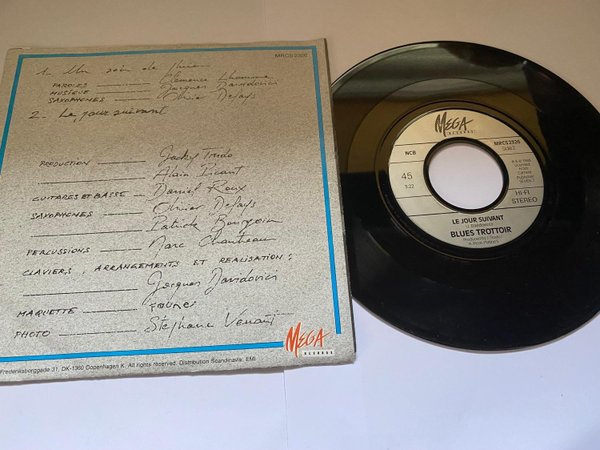 MRCS2326
1. Un soir de pluie
PAROLES Clemence Lhomme
MUSIQUE Jacques Davidovici
SAXOPHONES Olivier Defays
2. Le jour suivant
PRODUCTION Jacky Trudo
Alain Picant
GUITARES ET BASSE Daniel Roux
SAXOPHONES Olivier Defays
Patrick Bourgoin
PERCUSSIONS Marc Chantereau
CLAVIERS, ARRANGEMENTS ET REALISATION:
Jacques Davidovici
MAQUETTE
PHOTO Stephane Venaut
MEGA
RECORDS
Frederiksborggade 31, DK-1360 Copenhagen K. All rights reserved. Distribution Scandinavia: EMI
MEGA
RECORDS
NCB
MRCS2326
SIDE 2
45
HI-FI
STEREO
LE JOUR SUIVANT
BLUES TROTTOIR